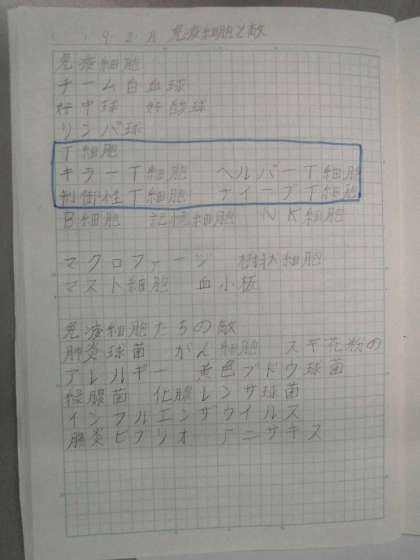 免疫細胞と敵
免疫細胞
チーム白血球
好中球 好酸球
リンパ球
T細胞
キラーT細胞 ヘルパーT細胞
制御性T細胞 ナイーブT細胞
B細胞 記憶細胞 NK細胞
マクロファージ 樹状細胞
マスト細胞 血小板
免疫細胞たちの敵
肺炎球菌 がん細胞 スギ花粉の
アレルギー 黄色ブドウ球菌
緑膿菌 化膿レンサ球菌
インフルエンザウイルス
腸炎ビブリオ アニサキス